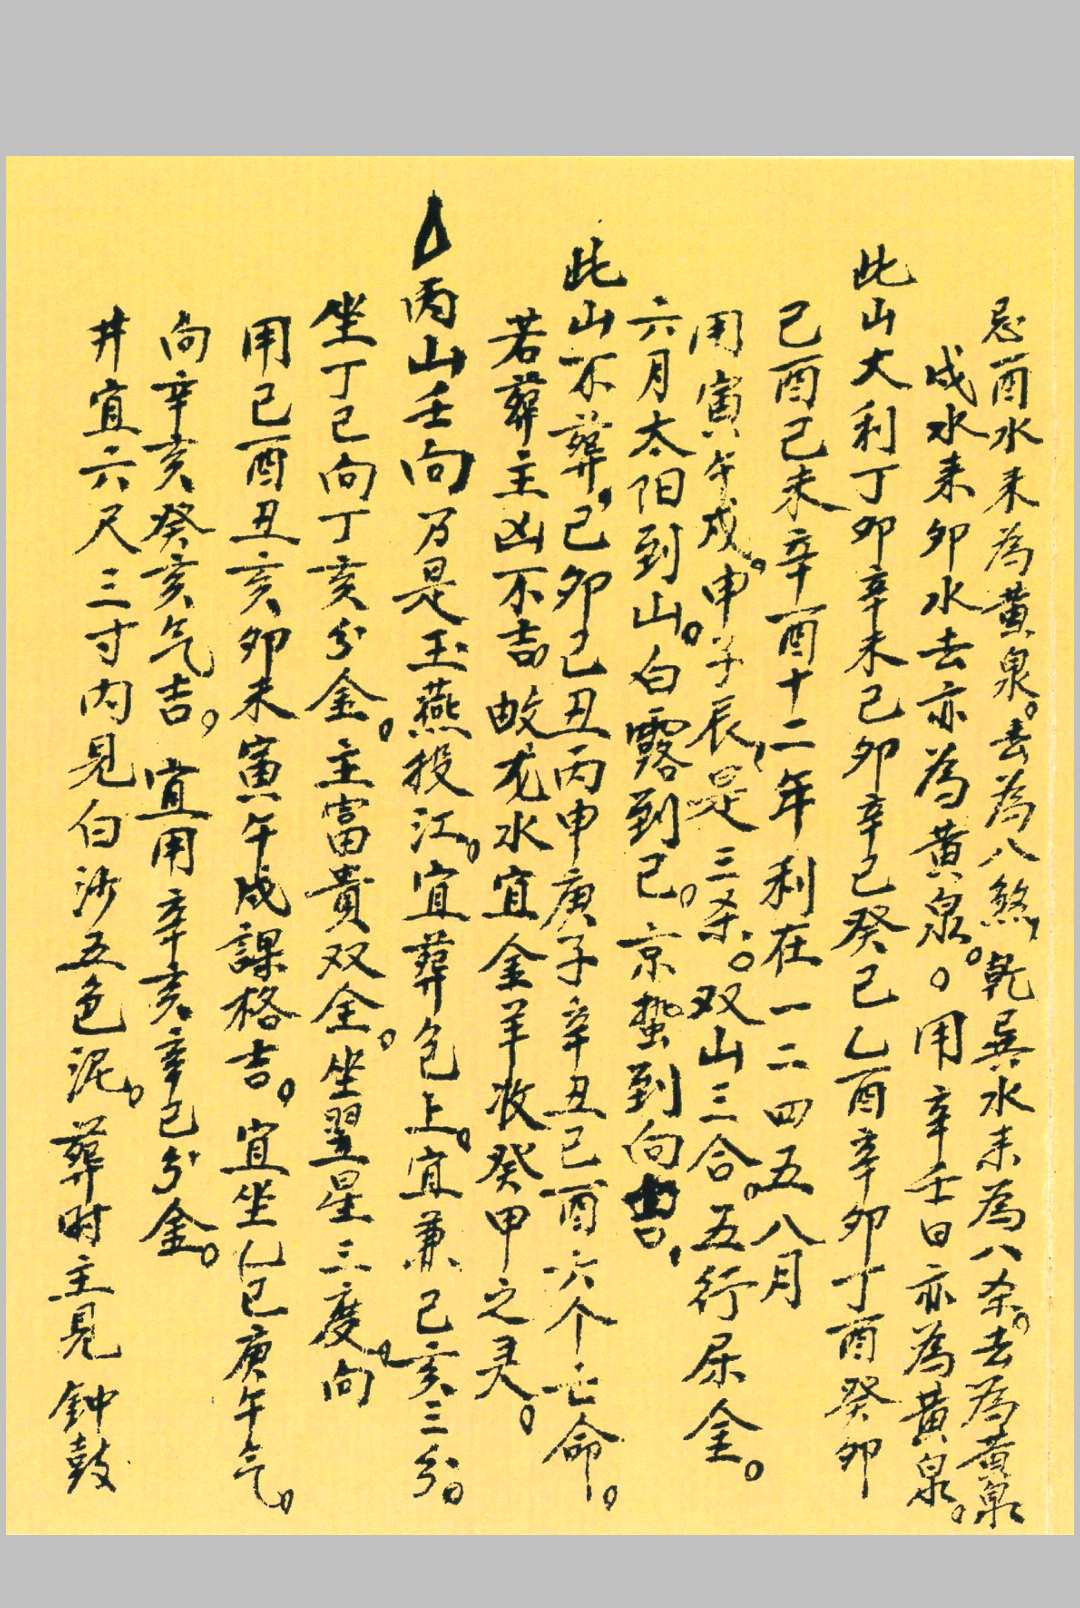 忌酉水来為黄泉。去為八煞，乾巽水来為八杀。去為黄泉
戌水来卯水去亦為黄泉。。用辛壬日亦為黄泉。
此山大利丁卯辛未己卯辛巳癸巳乙酉辛卯丁酉癸卯
己酉己未辛酉十二年利在一二四五八月
用寅午戌。申子辰，是三杀。双山三合。五行属金。
六月太阳到山。白露到巳。京蛰到向
此山不葬，己卯己丑丙申庚子辛丑己酉六个亡命。
若葬主凶不吉故龙水宜金羊收癸甲之灵。
丙山壬向乃是玉燕投江。宜葬包上。宜兼巳亥三分。
坐丁巳向丁亥分金。主富貴双全。坐翌星三度。向
用巳酉丑亥卯未寅午戌課格吉。宜坐乙巳庚午气。
向辛亥癸亥气吉。宜用辛亥辛巳分金。
井宜六尺三寸内見白沙五色泥。葬时主見钟鼓